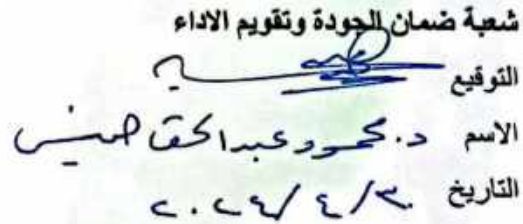 شعبة ضمان الجودة وتقويم الاداء
التوقيع
الاسم د. محمود عبد الحق
التاريخ ٣٠/٤/٢٠٢٤